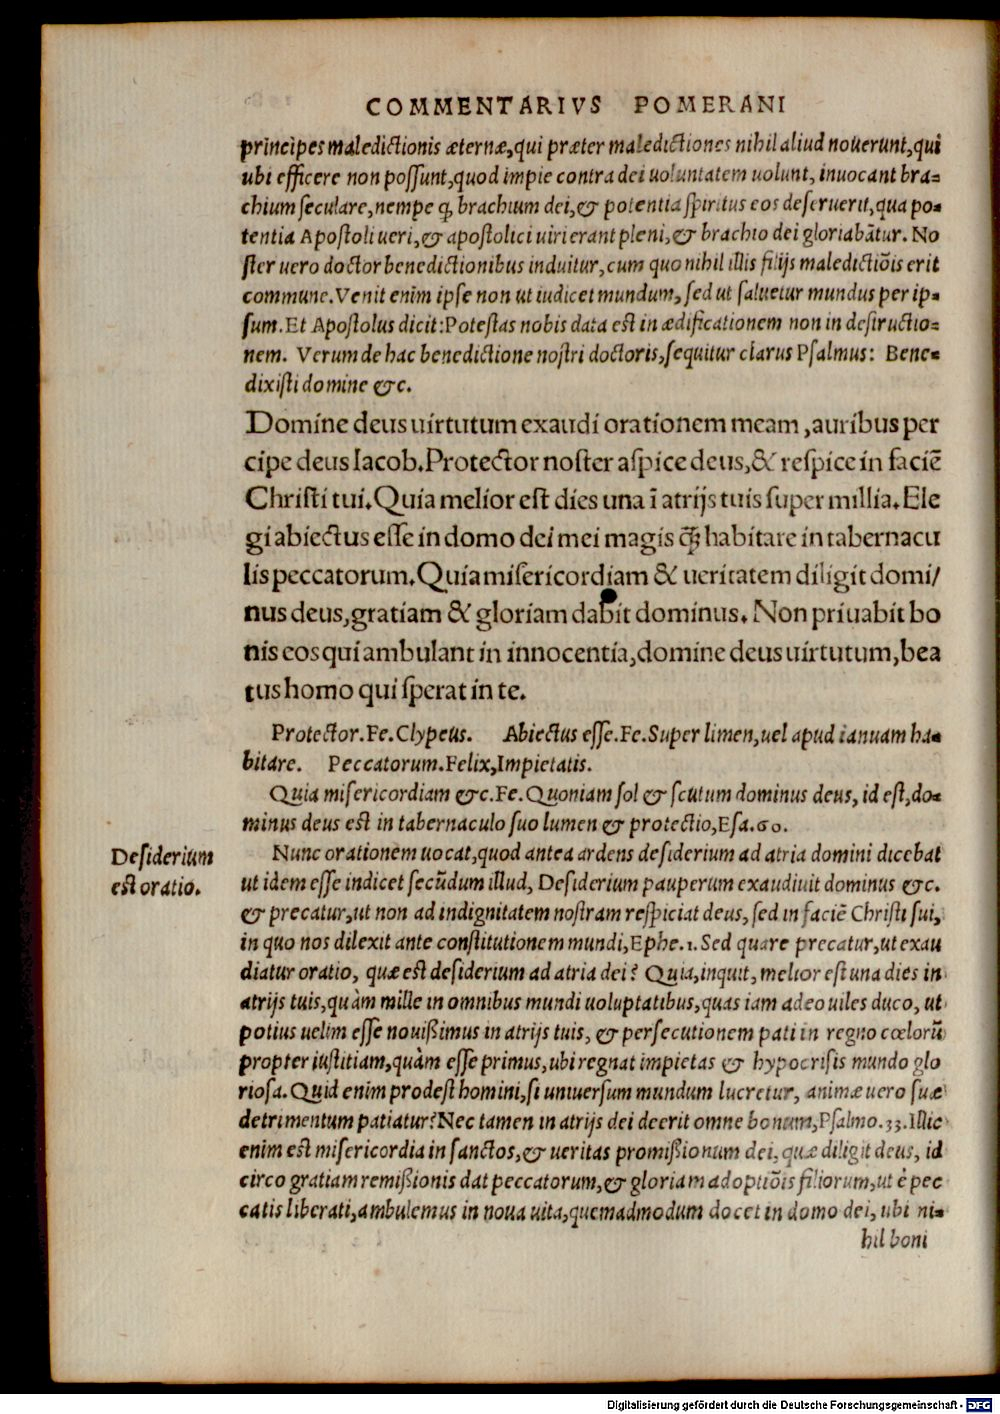 COMMENTARIVS POMERANI
principes maledictionis æternæ,qui præter maledictiones nihil aliud nouerunt,qui
ubi efficere non possunt,quod impie contra dei uoluntatem uolunt, inuocant bra-
chium seculare,nempe ꝙ brachium dei,& potentia spiritus eos deseruerit,qua po-
tentia Apostoli ueri,& apostolici uiri erant pleni,& brachio dei gloriabãtur. No
ster uero doctor benedictionibus induitur,cum quo nihil illis filijs maledictiõis erit
commune.Venit enim ipse non ut iudicet mundum, sed ut saluetur mundus per ip-
sum.Et Apostolus dicit:Potestas nobis data est in ædificationem non in destructio-
nem. Verum de hac benedictione nostri doctoris,sequitur clarus Psalmus: Bene-
dixisti domine &c.
Domine deus uirtutum exaudi orationem meam ,auribus per
cipe deus Iacob.Protector noster aspice deus,& respice in faciẽ
Christi tui.Quia melior est dies una ĩ atrijs tuis super millia.Ele
gi abiectus esse in domo dei mei magis ꝗ̃ habitare in tabernacu
lis peccatorum.Quia misericordiam & ueritatem diligit domi/
nus deus,gratiam & gloriam dabit dominus. Non priuabit bo
nis eos qui ambulant in innocentia,domine deus uirtutum,bea
tus homo qui sperat in te.
Protector.Fe.Clypeus. Abiectus esse.Fe.Super limen,uel apud ianuam ha-
bitare. Peccatorum.Felix,Impietatis.
Quia misericordiam &c.Fe.Quoniam sol & scutum dominus deus, id est,do-
minus deus est in tabernaculo suo lumen & protectio,Esa.60.
Desiderium
est oratio.
Nunc orationem uocat,quod antea ardens desiderium ad atria domini dicebat
ut idem esse indicet secũdum illud, Desiderium pauperum exaudiuit dominus &c.
& precatur,ut non ad indignitatem nostram respiciat deus, sed in faciẽ Christi sui,
in quo nos dilexit ante constitutionem mundi,Ephe.1. Sed quare precatur,ut exau
diatur oratio, quæ est desiderium ad atria dei? Quia,inquit, melior est una dies in
atrijs tuis,quàm mille in omnibus mundi uoluptatibus,quas iam adeo uiles duco, ut
potius uelim esse nouißimus in atrijs tuis, & persecutionem pati in regno cœlorũ
propter iustitiam,quàm esse primus,ubi regnat impietas & hypocrisis mundo glo
riosa.Quid enim prodest homini,si uniuersum mundum lucretur, animæ uero suæ
detrimentum patiatur?Nec tamen in atrijs dei deerit omne bonum,Psalmo.33.Illic
enim est misericordia in sanctos,& ueritas promißionum dei, quæ diligit deus, id
circo gratiam remißionis dat peccatorum,& gloriam adoptiõis filiorum,ut è pec
catis liberati,ambulemus in noua uita,quemadmodum docet in domo dei, ubi ni-
hil boni
Digitalisierung gefördert durch die Deutsche Forschungsgemeinschaft - DFG